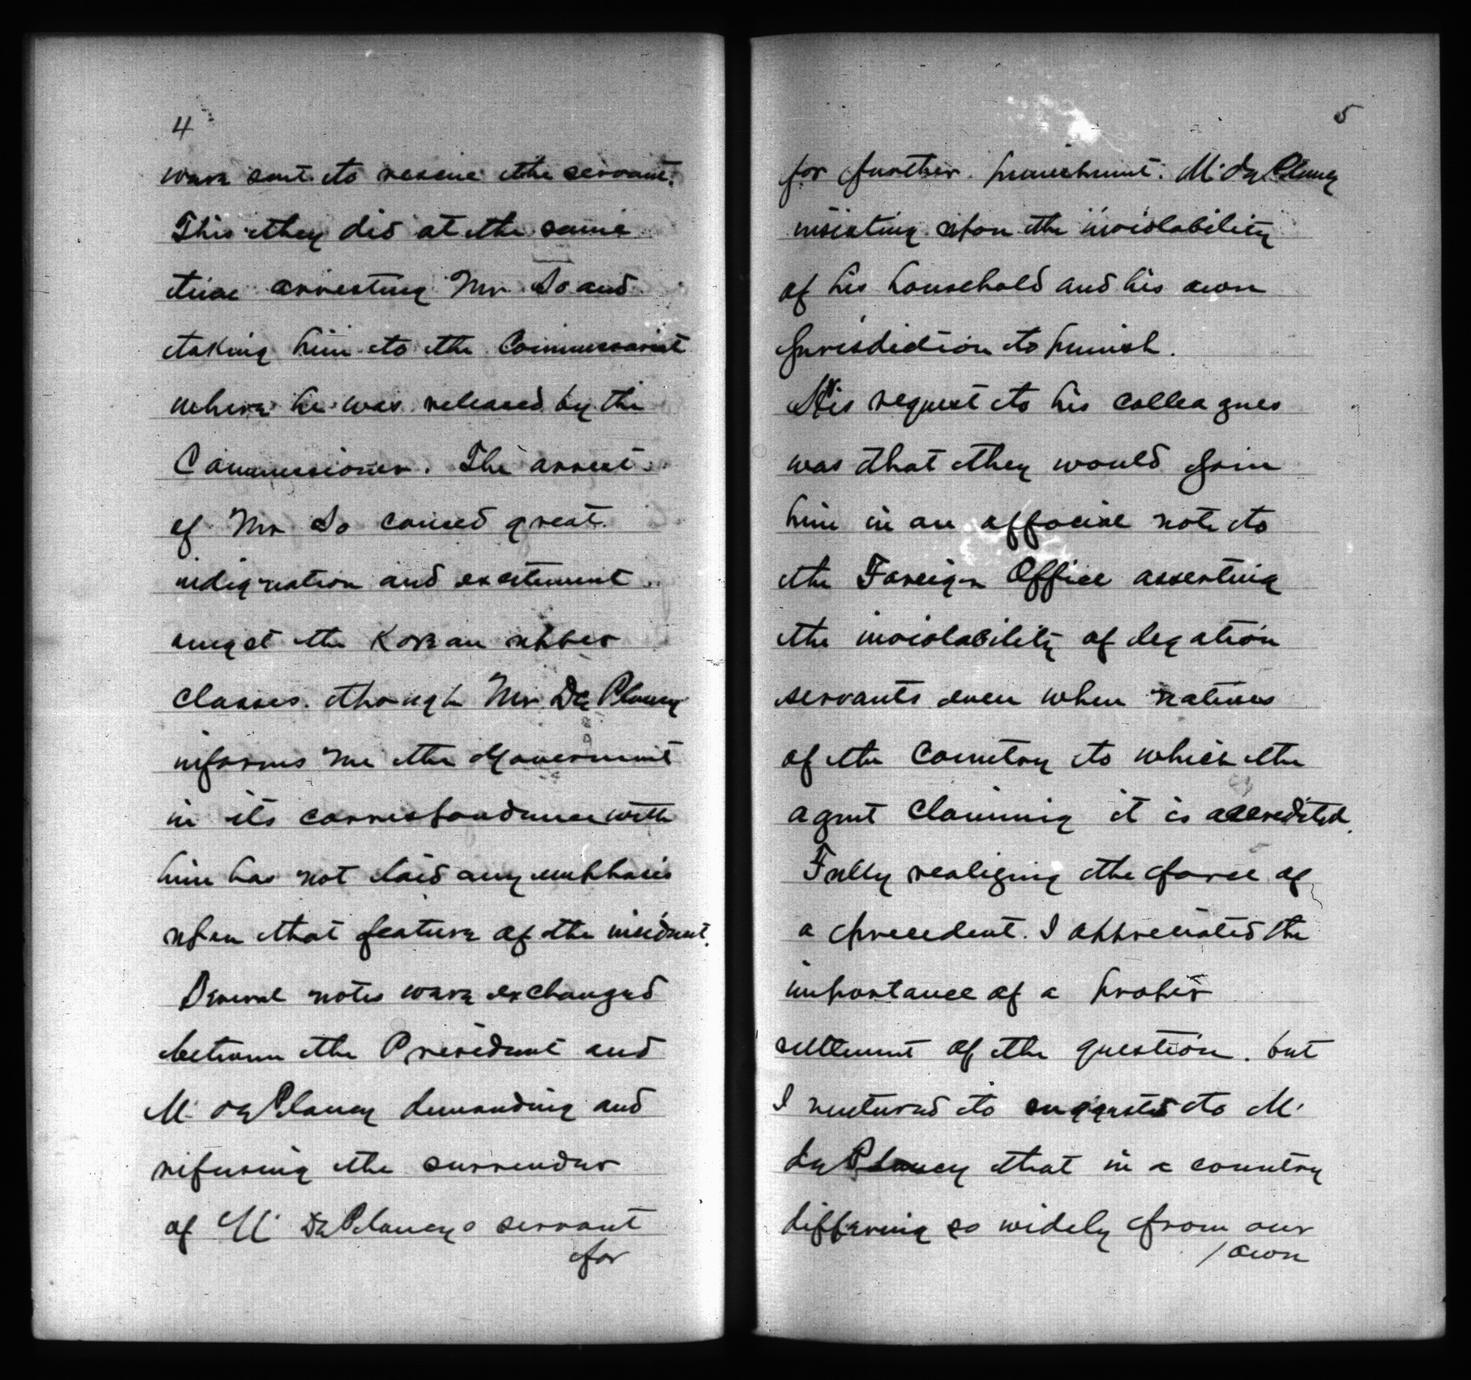 4
were sent to rescue the servant.
This they did at the same
time arresting Mr. So and
taking him to the Commissariat
where he was released by the
Commissioner. The arrest
of Mr So caused great
indignation and excitement
amgst the Korean upper
classes. though Mr De Plancy
informs me the Government
in its correspondence with
him has not laid any emphasis
upon that feature of the incident.
Several notes were exchanged
between the President and
M. de Plancy demanding and
refusing the surrender
of M. De Plancys servant
for
5
for further punishment. M. de Plancy
insisting upon the inviolability
of his household and his own
jurisdiction to punish.
His request to his colleagues
was that they would join
him in an official note to
the Foreign Office asserting
the inviolability of legation
servants even when natives
of the country to which the
agent claiming it is accredited.
Fully realizing the force of
a precedent. I appreciated the
importance of a proper
settlement of the question. but
I ventured to suggested to M.
de Plancy that in a country
differing so widely from our
/own